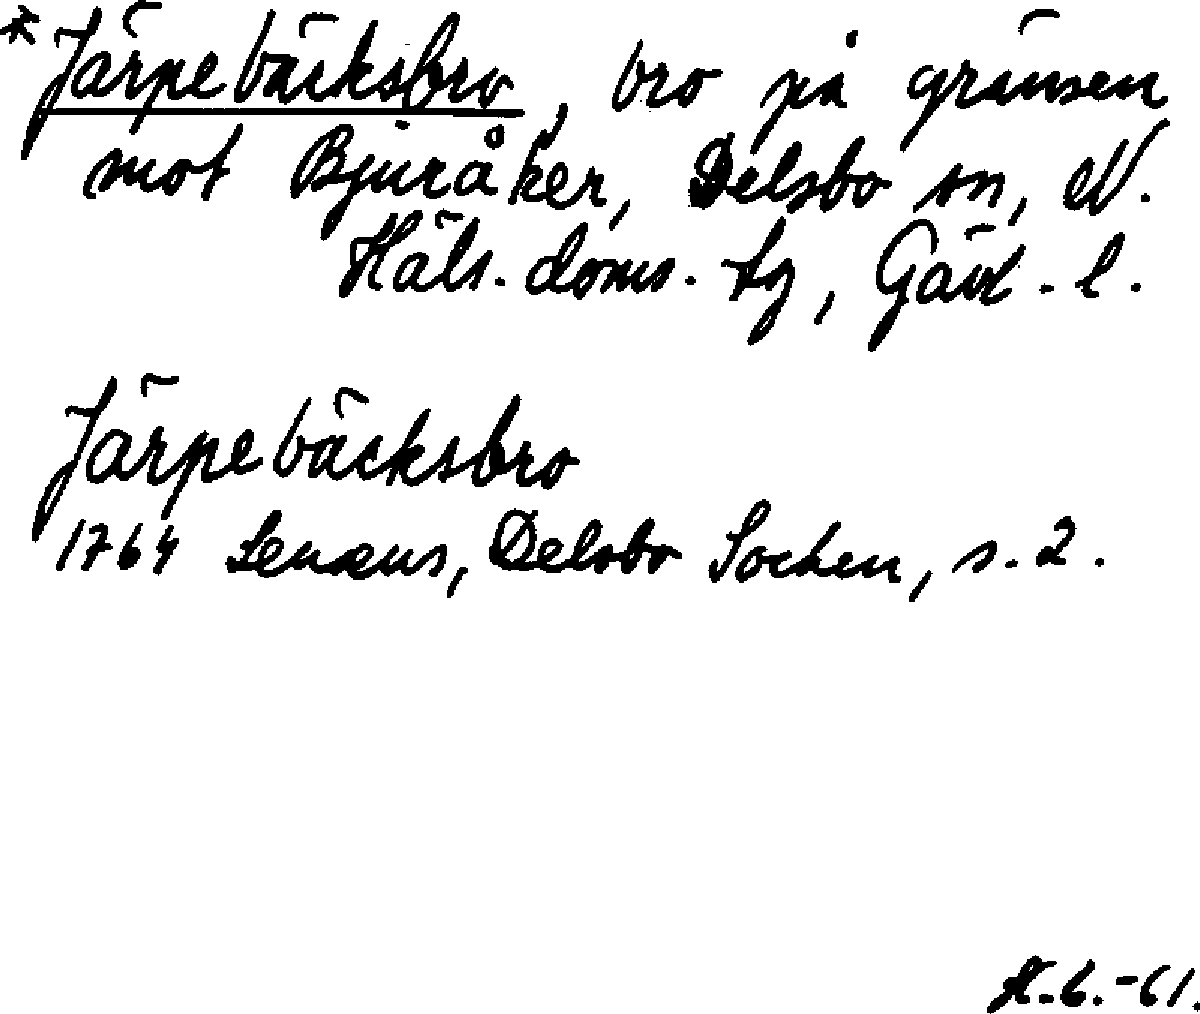 * Järpebäcksbro, bro på gränsen
mot Bjuråker, Delsbo sn, N.
Häls. doms. tg, Gävl. l.
Järpebäcksbro
1764 Lenæus, Delsbo Sochen, s. 2.